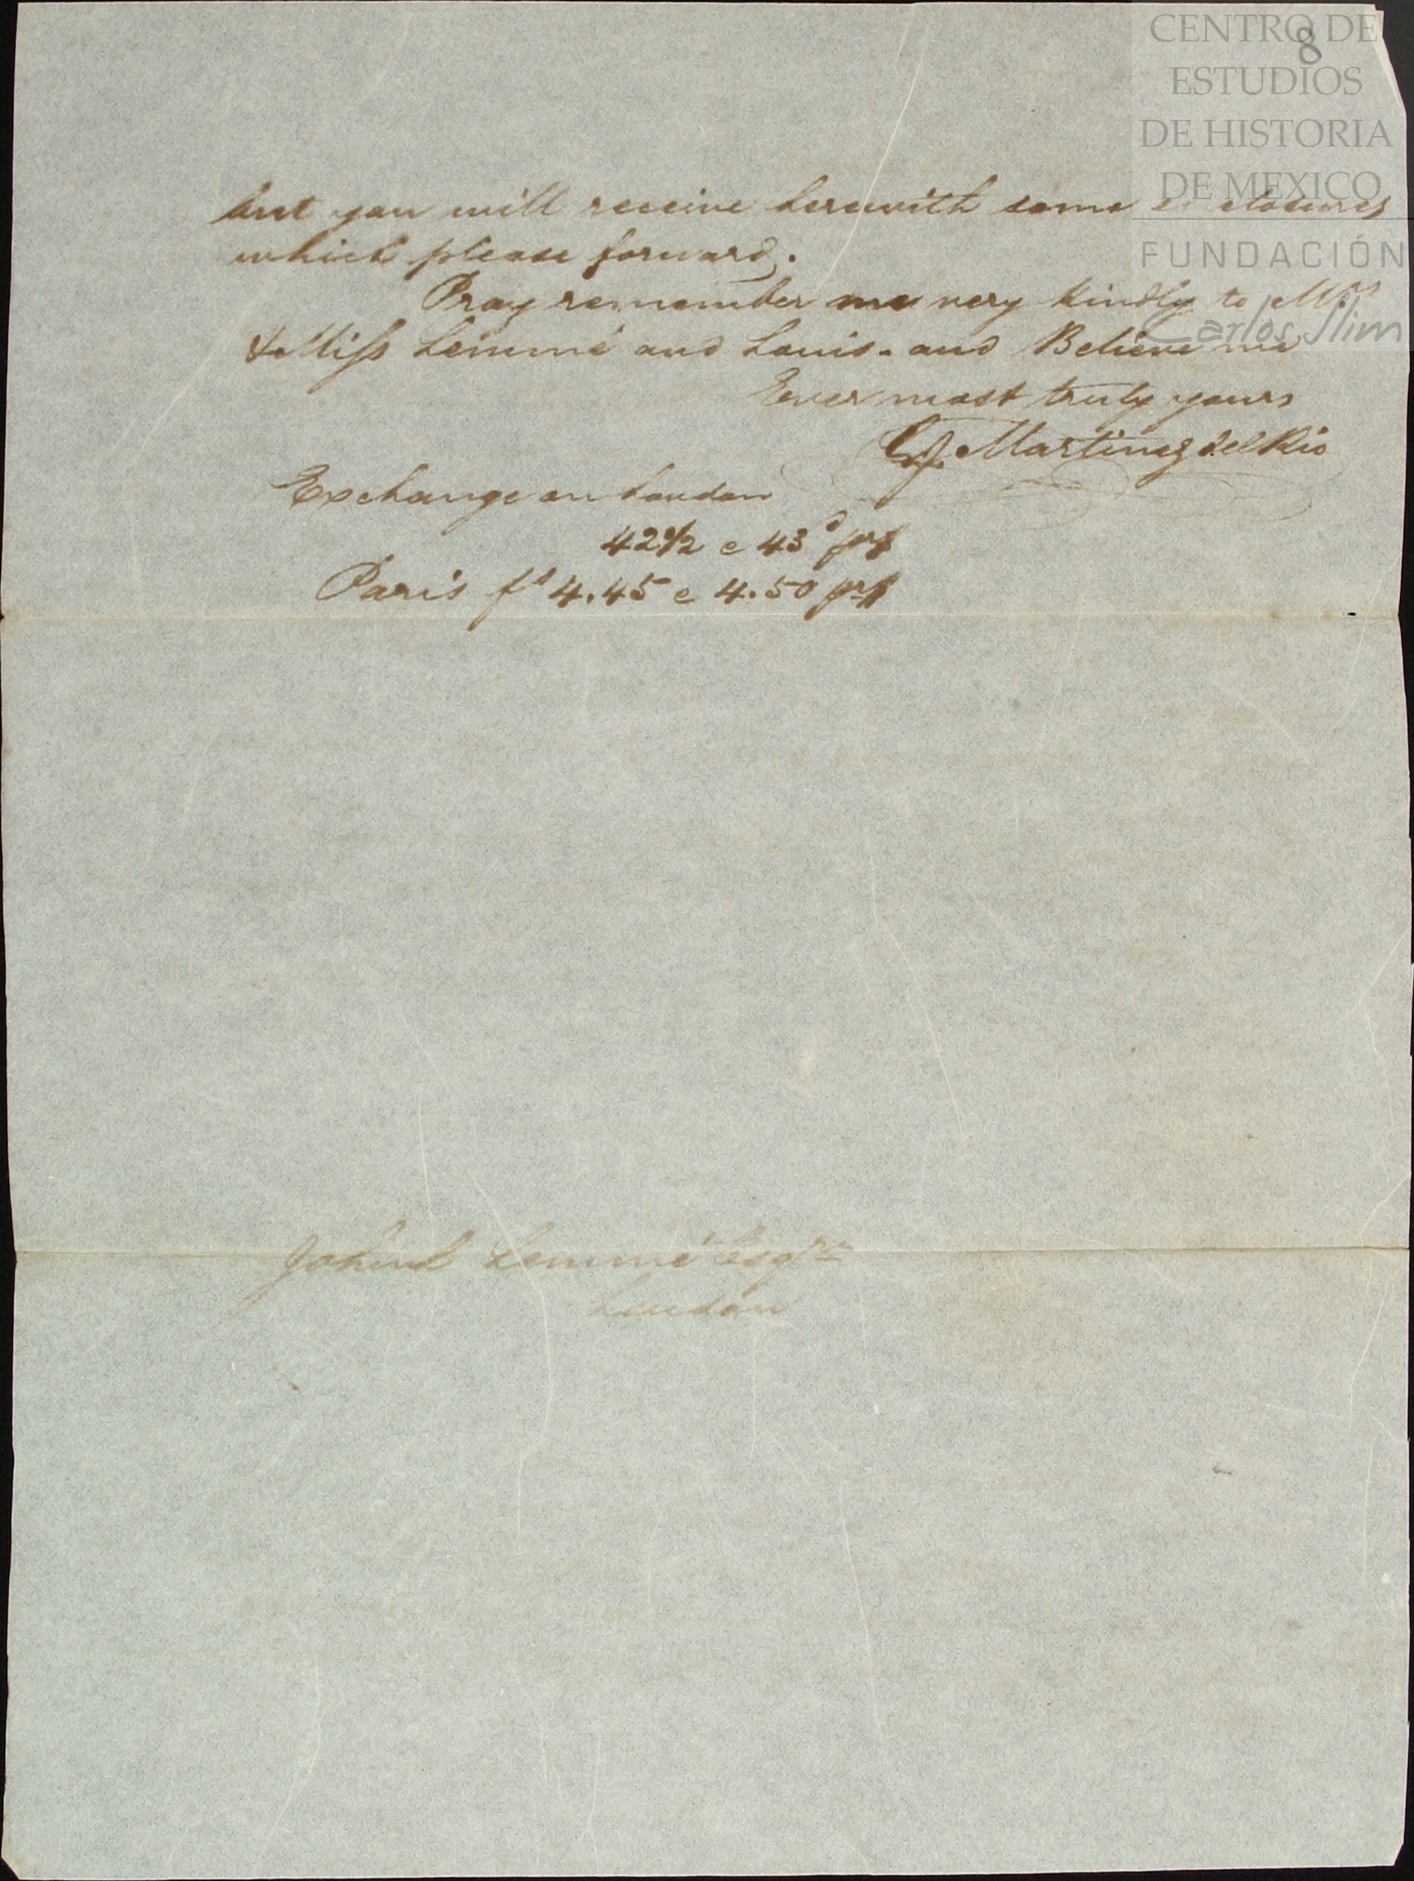 8
CENTRO DE
ESTUDIOS
DE HISTORIA
DE MEXICO
FUNDACIÓN
Carlos Slim
but you will receive herewith some enclosures
which please forward.
Pray remember me very kindly to Mrs
& Miss Lemmé and Louis. and Believe me
Ever most truly yours
Martinez del Rio
Exchange on London
42½ e 43d
Paris fs 4.45 e 4.50
Lemmé Esqre
London